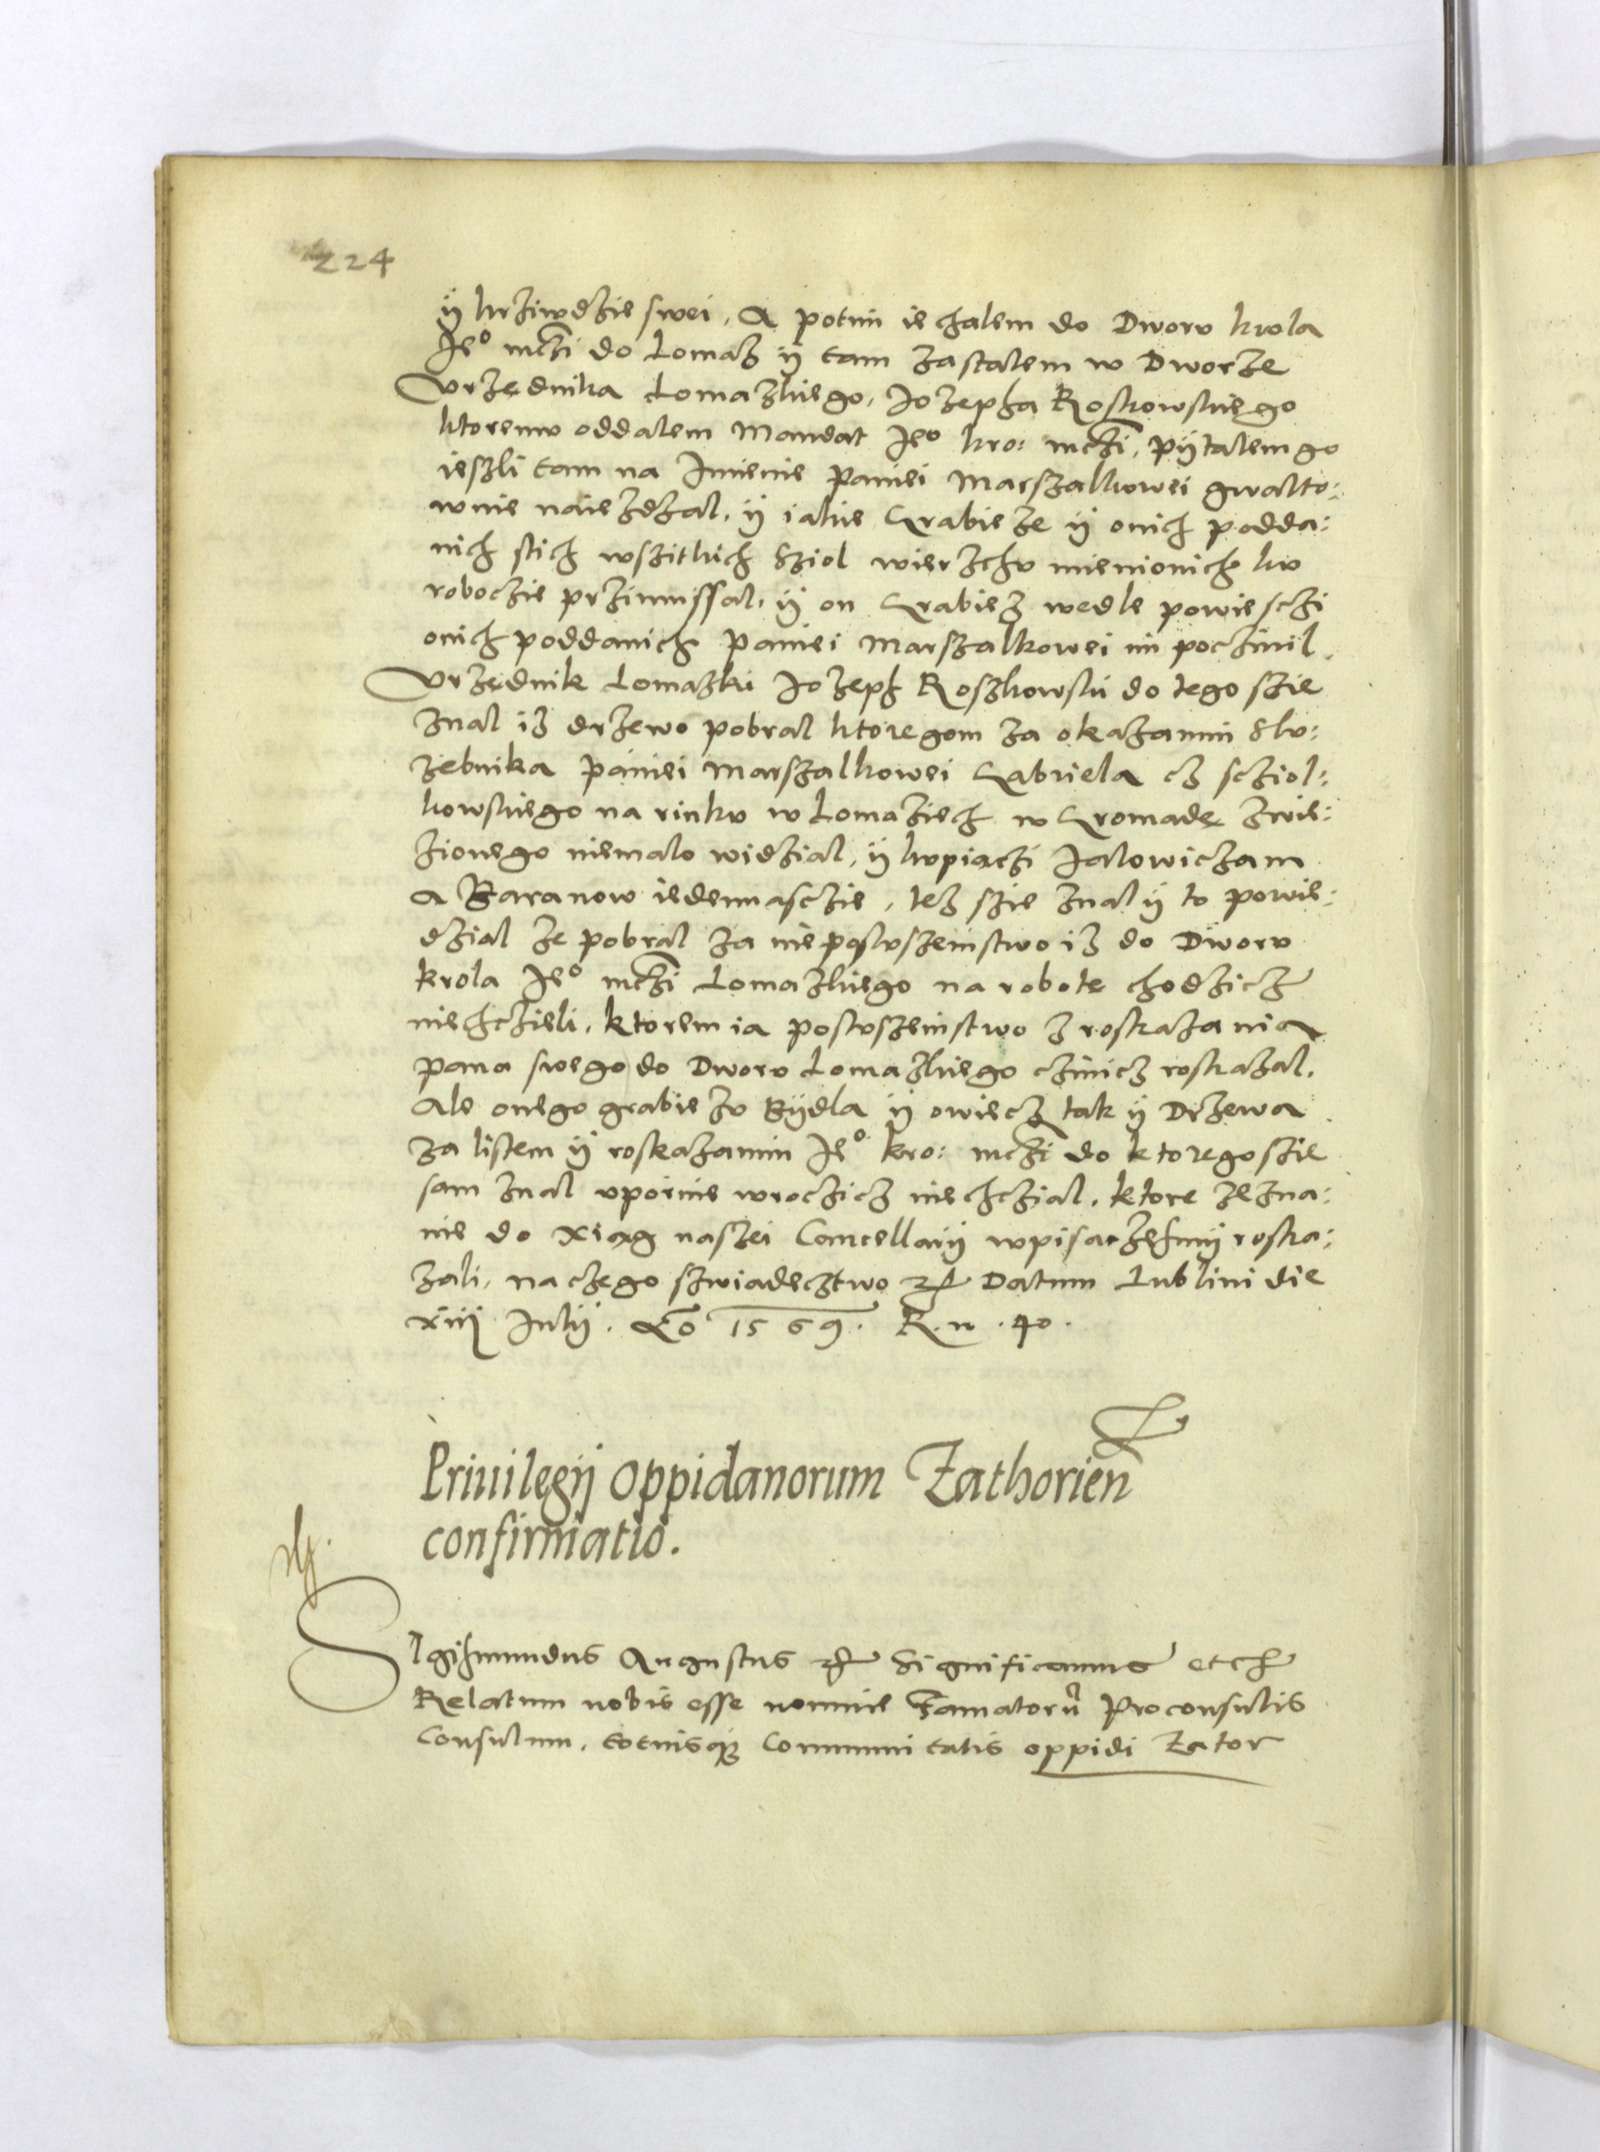 224
ÿ krziwdzie swei. A potim iechalem do Dworu krola
Je⁰ mczi do Lomaz ÿ tam zastalem w Dworze
Vrzędnika Lomazkiego, Jozepha Roskowskiego
ktoremu oddalem Mandat Je⁰ kro: mczi, pÿtalem go
ieszli tam na Jmienie paniei Marszalkowei gwalto:
wnie naiezdzal, ÿ iakie Grabieze ÿ onich podda:
nich stich wszitkich Sziol wierzchu mienionich ku
roboczie przimussal, ÿ on Grabiez wedle powiesczi
onich poddanich paniei Marszalkowei im poczinil.
Vrzędnik Lomazki Jozeph Roszkowski do tego szie
znal iz drzewo pobral ktoregom za okazanim Slu:
zebnika paniei Marszalkowei Gabriela cz sciol:
kowskiego na rinku w Lomaziech w Gromadę zwie:
zionego niemalo widzial, ÿ kupiaczi Jalowiczam
A Baranow iedennasczie, tez szie znal ÿ to powie:
dzial ze pobral za nieposluszenstwo iz do Dworu
krola Je⁰ mczi Lomazkiego na robote chodzicz
niechczieli, ktorem ia posluszenstwo z roskazania
pana swego do Dworu Lomazkiego czinicz roskazal.
Ale onego grabiezu Bÿdla ÿ owiecz tak ÿ Drzewa
za listem ÿ roskazanim Je⁰ kro: mczi do ktorego szie
sam znal upornie wroczicz niechczial. ktore zezna:
nie do xiąg naszei Cancellariÿ wpisac zesmÿ roska:
zali, na czego szwiadecztwo etc Datum Lublini die
xiiij Julÿ. Aō 1569. R. n. 40.
Priuilegÿ oppidanorum Zathorien
confirmatio.
SIgismundus Augustus etc Significamus etc
Relatum nobis esse nomine Famatorū Proconsulis
Consulum, totiusq; Communitatis oppidi Zator